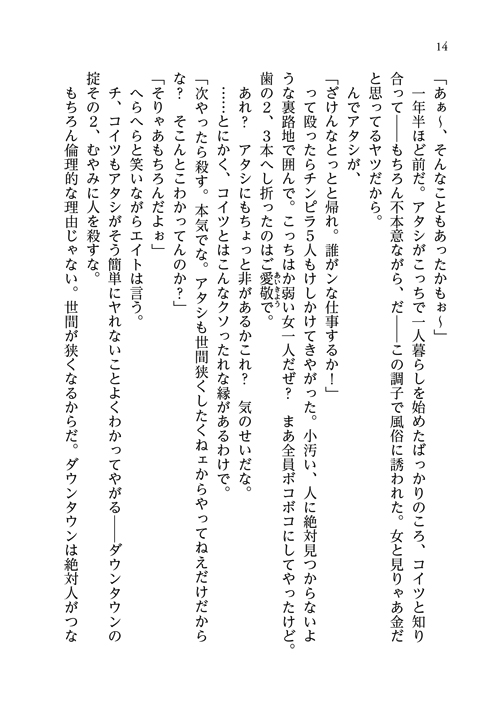 14
「あぁ～、そんなこともあったかもぉ～」
　一年半ほど前だ。アタシがこっちで一人暮らしを始めたばっかりのころ、コイツと知り
合って――もちろん不本意ながら、だ――この調子で風俗に誘われた。女と見りゃあ金だ
と思ってるヤツだから。
　んでアタシが、
「ざけんなとっとと帰れ。誰がンな仕事するか！」
　って殴ったらチンピラ５人もけしかけてきやがった。小汚い、人に絶対見つからないよ
うな裏路地で囲んで。こっちはか弱い女一人だぜ？　まあ全員ボコボコにしてやったけど。
歯の２、３本へし折ったのはご愛敬あいきょうで。
　あれ？　アタシにもちょっと非があるかこれ？　気のせいだな。
　……とにかく、コイツとはこんなクソったれな縁があるわけで。
「次やったら殺す。本気でな。アタシも世間狭くしたくねェからやってねえだけだから
な？　そこんとこわかってんのか？」
「そりゃあもちろんだよぉ」
　へらへらと笑いながらエイトは言う。
　チ、コイツもアタシがそう簡単にヤれないことよくわかってやがる――ダウンタウンの
掟その２、むやみに人を殺すな。
　もちろん倫理的な理由じゃない。世間が狭くなるからだ。ダウンタウンは絶対人がつな